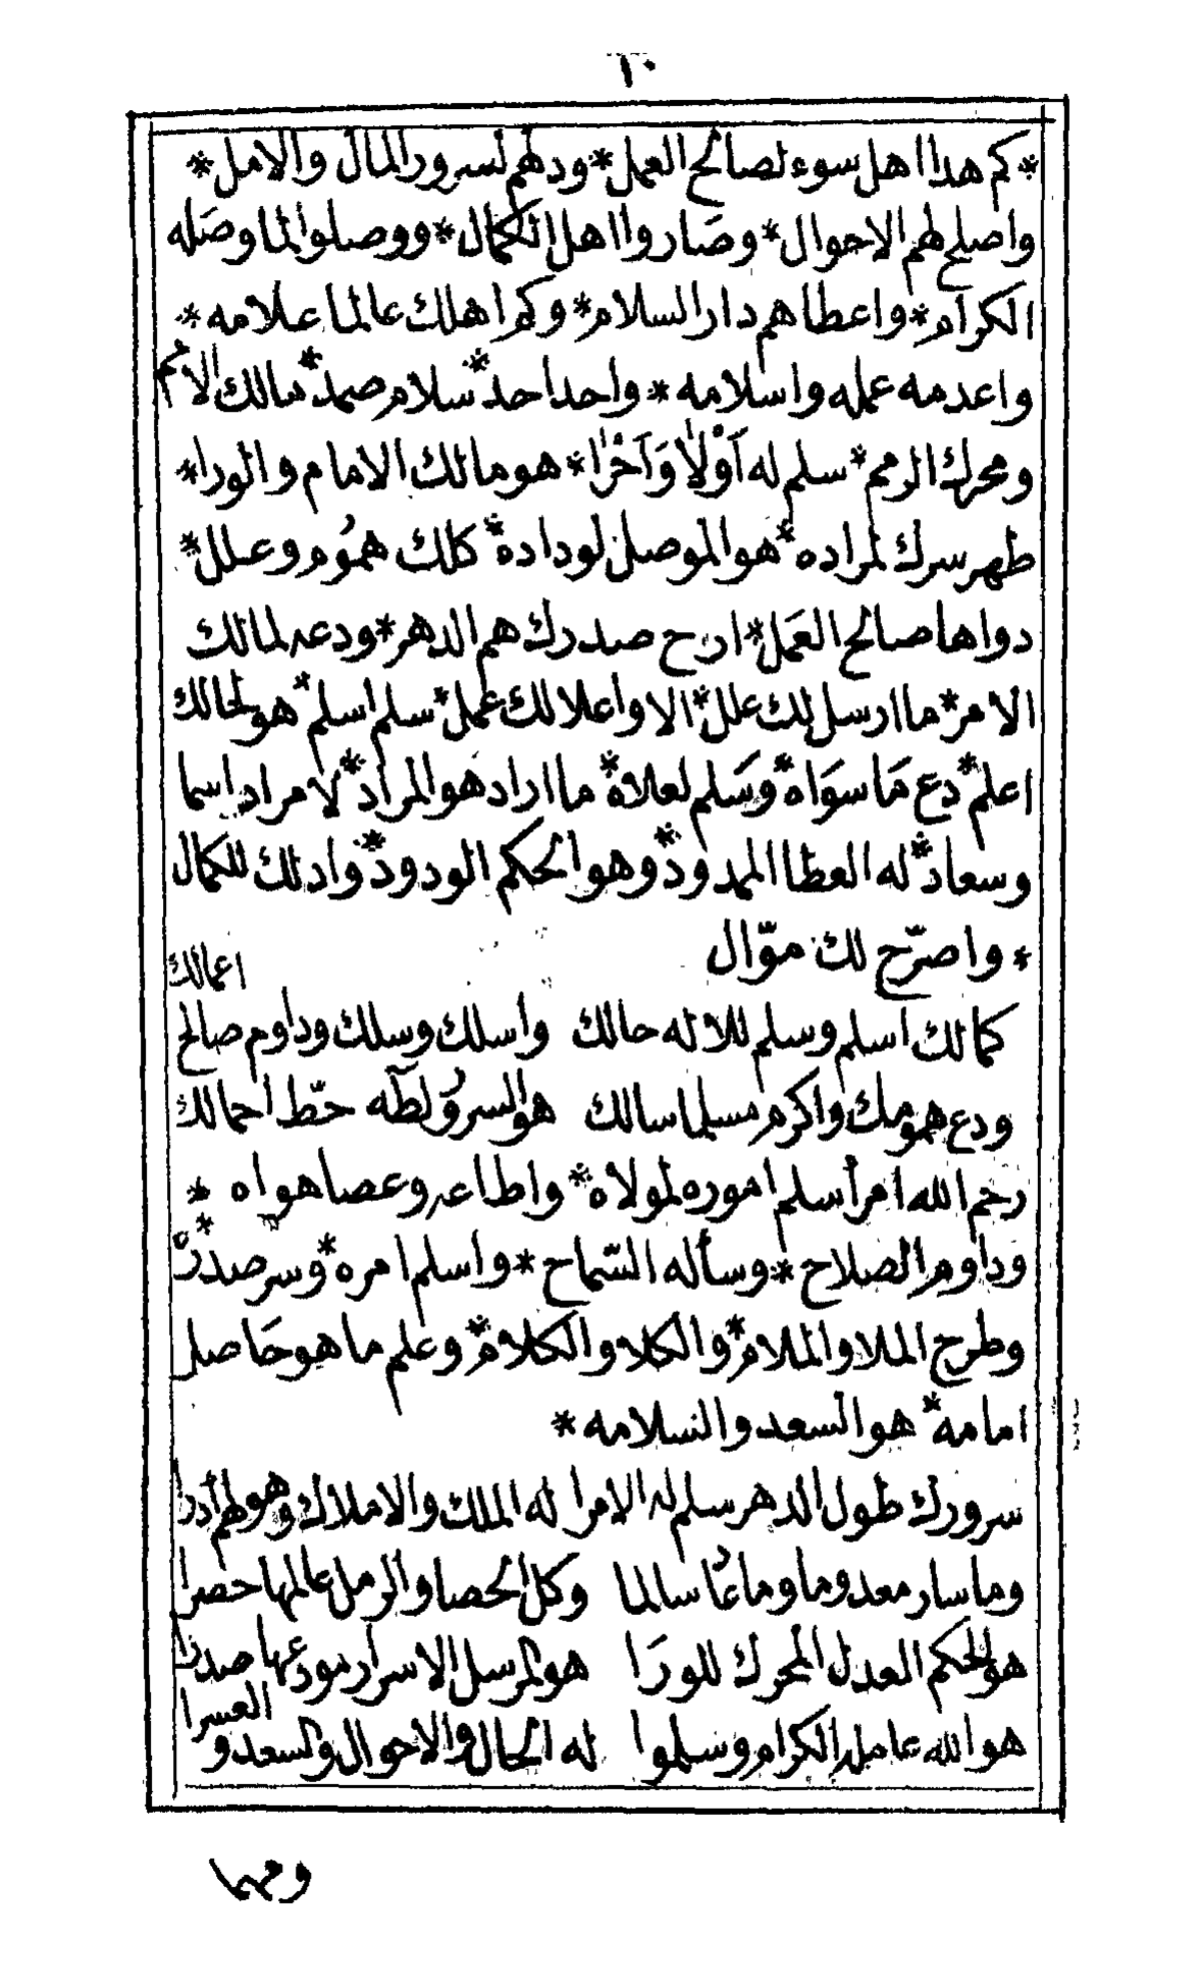 ١٠
* كم هدا اهل سوء لصالح العمل * ودلهم لسرور المال والامل *
واصلح لهم الاحوال * وصَاروا اهل الكمال * ووصلوا لما وصَله
الكرام * واعطاهم دار السلام * وكم اهلك عالما علامه *
واعدمه عمله واسلامه * واحد احد * سلام صمد * مالك الامم
ومحرك الرمم * سلم له اَوْلاً وَآخْرًا * هو مالك الامام والورا *
طهر سرك لمراده * هو الموصل لوداده * كلك همُوم وعلل *
دواها صالح العَمَل * ارح صدرك هم الدهر * ودعه لمالك
الامر * ما ارسل لك علل * الا واعلا لك عمل * سلم اسلم * هو لحالك
اعلم * دع مَا سوَاه * وسَلم لعلاه * ما اراد هو المراد * لا مراد اسما
وسعاد * له العطا الممدود * وهو الحكم الودود * وادلك للكمال
* واصرّح لك موّال
كمالك اسلم وسلم للاله حالك واسلك وسلك وداوم صالح اعمالك
ودع همومك واكرم مسلما سالك هو السرور لطه حطّ احمالك
رحم الله امرأ سلم اموره لمولاه * واطاعه وعصا هواه *
وداوم الصلاح * وسأله السّماح * واسلم امره * وسر صدره *
وطرح الملا والملام * والكلا والكلام * وعلم ما هو حَاصل
امامه * هو السعد والسلامه *
سرورك طول الدهر سلم له الامرا له الملك والاملاك وهو لهم أدرا
وما سار معدوما وما عُمّا سالما وكل الحصا والرمل عالمها حصرا
هو الحكم العدل المحرك للورَا هو المرسل الاسرار مودعها صدرا
هو الله عامل الكرام وسلموا له الحال والاحوال والسعد والعسرا
ومهما